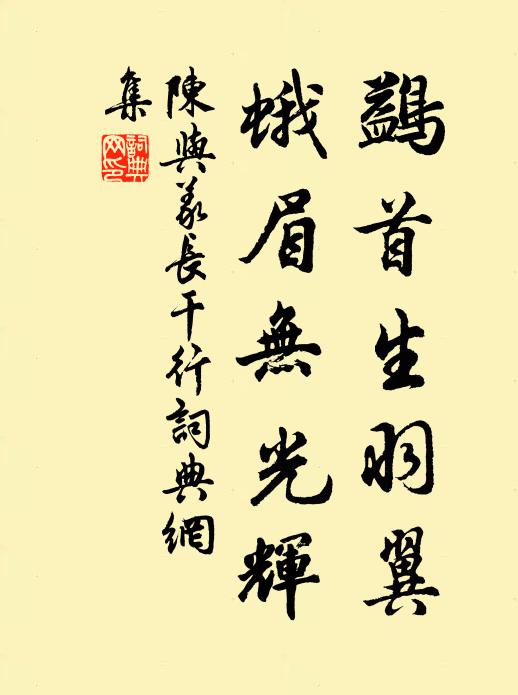 鷁首生羽翼
蛾眉無光輝
陳與義長干行詞典網
集
詞典
网印